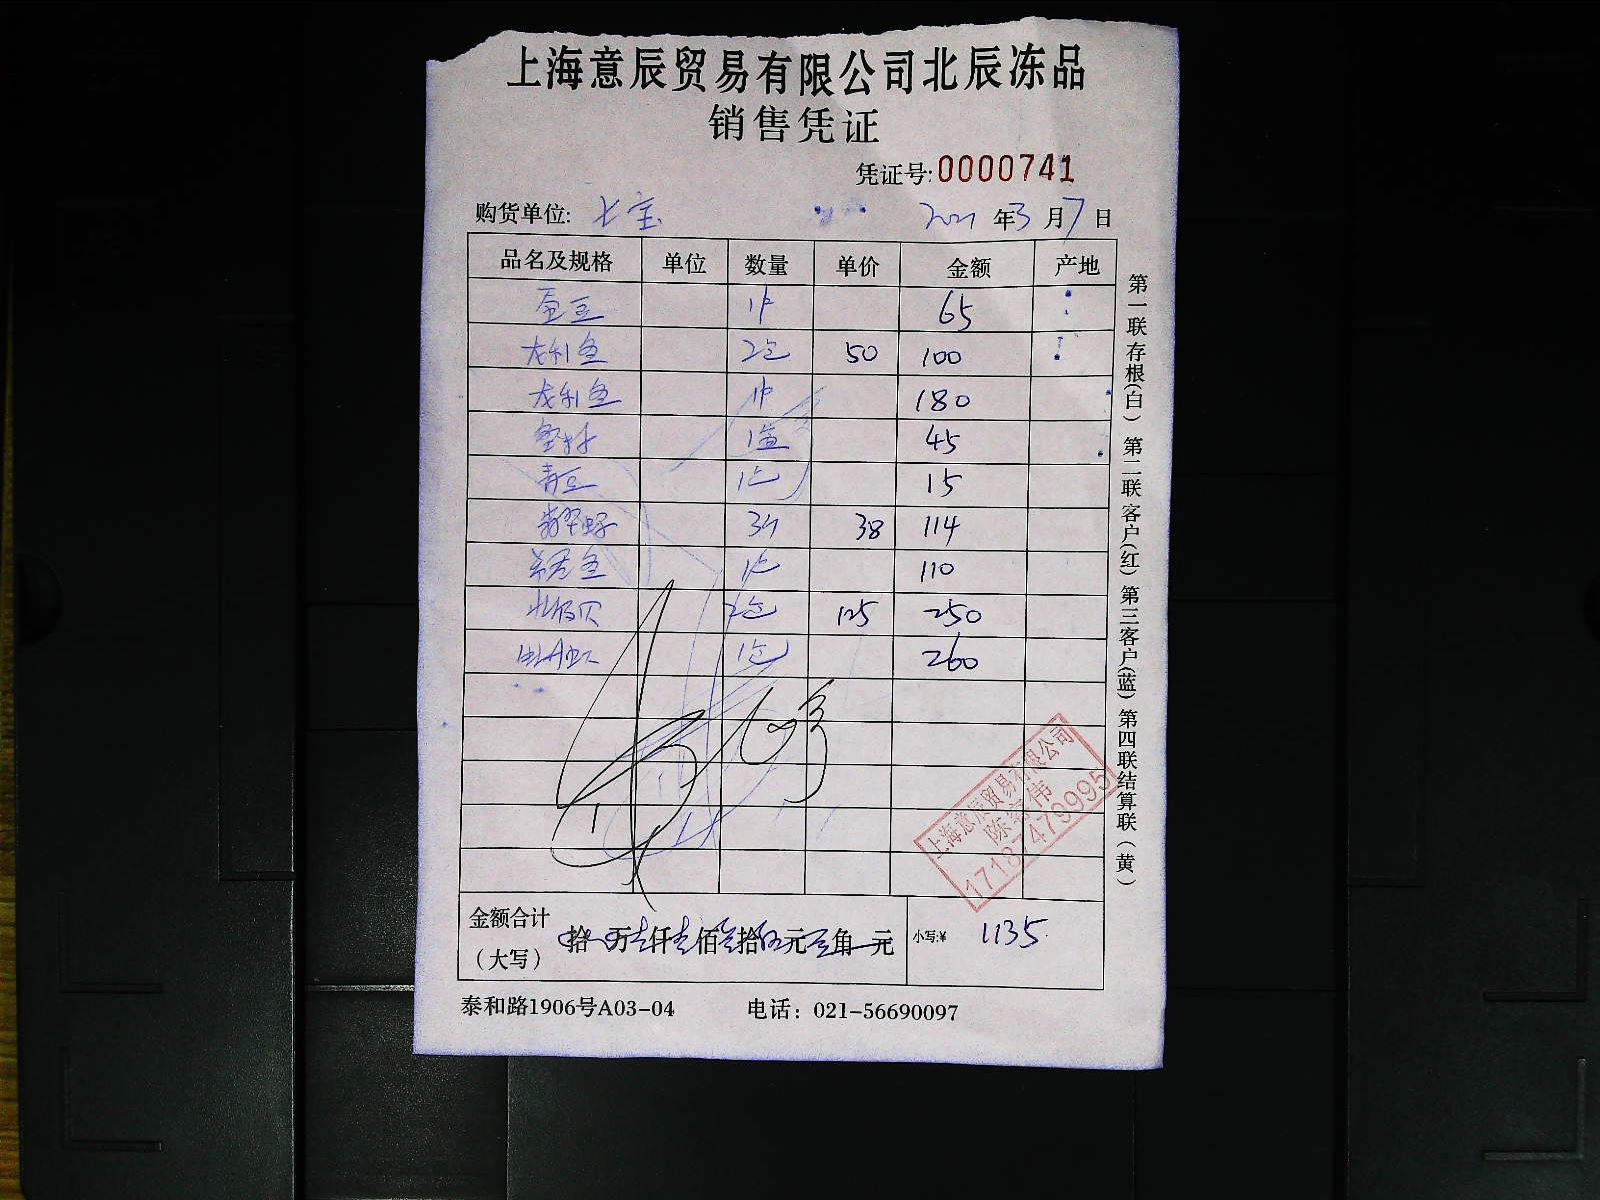 上海意辰贸易有限公司北辰冻品
销售凭证
凭证号:0000741
购货单位: 七宝 2021 年 3 月 7 日
品名及规格 单位 数量 单价 金额 产地
蚕豆 1件 65
龙利鱼 2包 50 100
龙利鱼 1件 180
1盒 45
青豆 1包 15
38 114
1包 110
北极贝 2包 125 250
1包 260
金额合计
(大写) 拾 万壹仟壹佰叁拾伍元 角 元 小写:¥ 1135
泰和路1906号A03-04 电话：021-56690097
第一联存根(白) 第二联客户(红) 第三客户(蓝) 第四联结算联(黄)
上海意辰贸易有限公司
17187479995